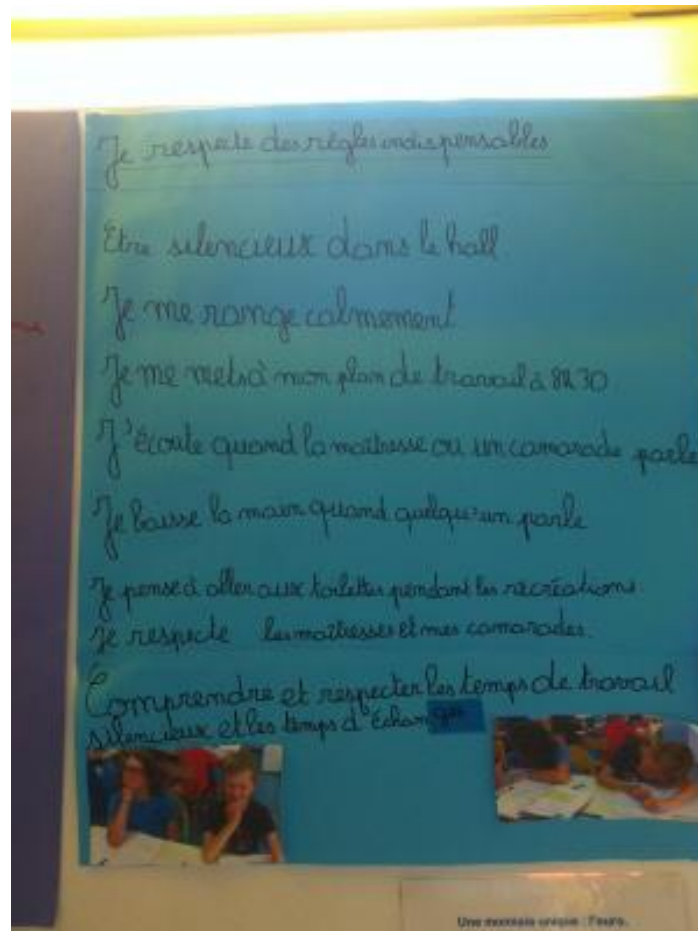 Je respecte des règles indispensables
Etre silencieux dans le hall
Je me range calmement
Je me mets à mon plan de travail à 8h30
J'écoute quand la maîtresse ou un camarade parle
Je baisse la main quand quelqu'un parle
Je pense à aller aux toilettes pendant les récréations.
Je respecte les maîtresses et mes camarades.
Comprendre et respecter les temps de travail
silencieux et les temps d'échange
Une monnaie unique : l'euro.